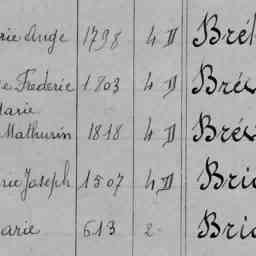 rie Ange 1798 4 D Bré
e Frederic 1803 4 D Bré
Marie
Mathurin 1818 4 D Bré
rie Joseph 1507 4 D Bri
arie 613 2 Bri